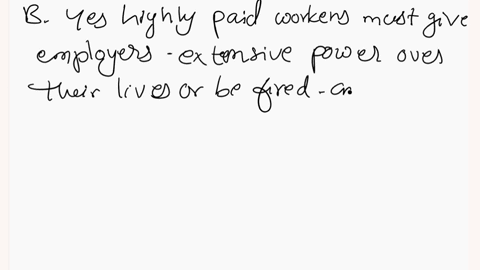 B. Yes highly paid workers must give
employers - extensive power over
their lives or be fired -